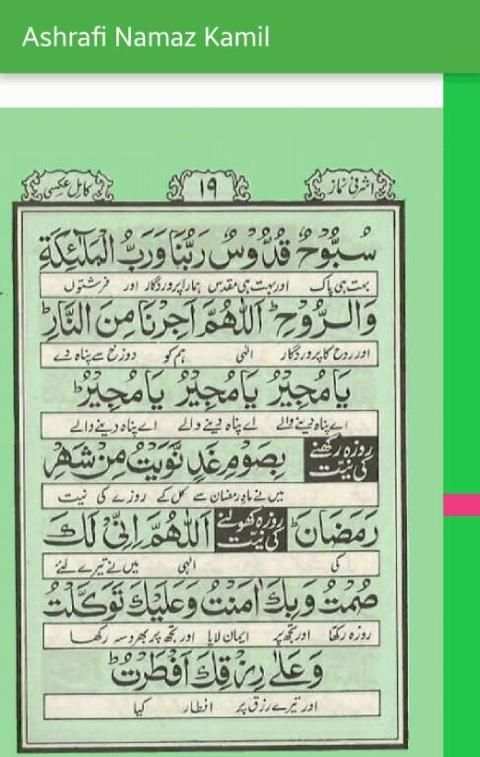 Ashrafi Namaz Kamil
اشرفی نماز ۱۹ کامل عکسی
سُبُّوْحٌ قُدُّوْسٌ رَبُّنَا وَرَبُّ الْمَلٰٓئِكَةِ
بہت ہی پاک اور بہت ہی مقدس ہمارا پروردگار اور فرشتوں
وَالرُّوْحِ ؕ اَللّٰهُمَّ اَجِرْنَا مِنَ النَّارِ
اور روح کا پروردگار الٰہی ہم کو دوزخ سے پناہ دے
يَا مُجِيْرُ يَا مُجِيْرُ يَا مُجِيْرُ ؕ
اے پناہ دینے والے اے پناہ دینے والے اے پناہ دینے والے
روزہ رکھنے کی نیت بِصَوْمِ غَدٍ نَّوَيْتُ مِنْ شَهْرِ
میں نے ماہ رمضان سے کل کے روزے کی نیت
رَمَضَانَ ؕ روزہ کھولنے کی نیت اَللّٰهُمَّ اِنِّیْ لَكَ
کی الٰہی میں نے تیرے لئے
صُمْتُ وَبِكَ اٰمَنْتُ وَعَلَيْكَ تَوَكَّلْتُ
روزہ رکھا اور تجھ پر ایمان لایا اور تجھ پر بھروسہ رکھا
وَعَلٰى رِزْقِكَ اَفْطَرْتُ ؕ
اور تیرے رزق پر افطار کیا